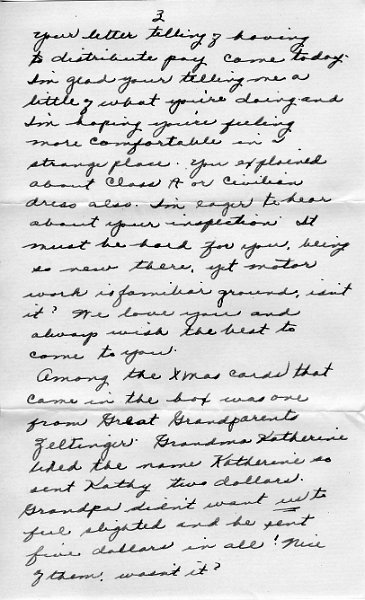 3
Your letter telling of having
to distribute pay came today.
I'm glad your telling me a
little of what you're doing and
I'm hoping you're feeling
more comfortable in a
strange place. You explained
about Class A or Civilian
dress also. I'm eager to hear
about your inspection. It
must be hard for you, being
so new there, yet motor
work is familiar ground, isn't
it? We love you and
always wish the best to
come to you.
Among the Xmas cards that
came in the box was one
from Great Grandparents
Zeltinger. Grandma Katherine
liked the name Katherine so
sent Kathy two dollars.
Grandpa didn't want us to
feel slighted and he sent
five dollars in all! Nice
of them, wasn't it?